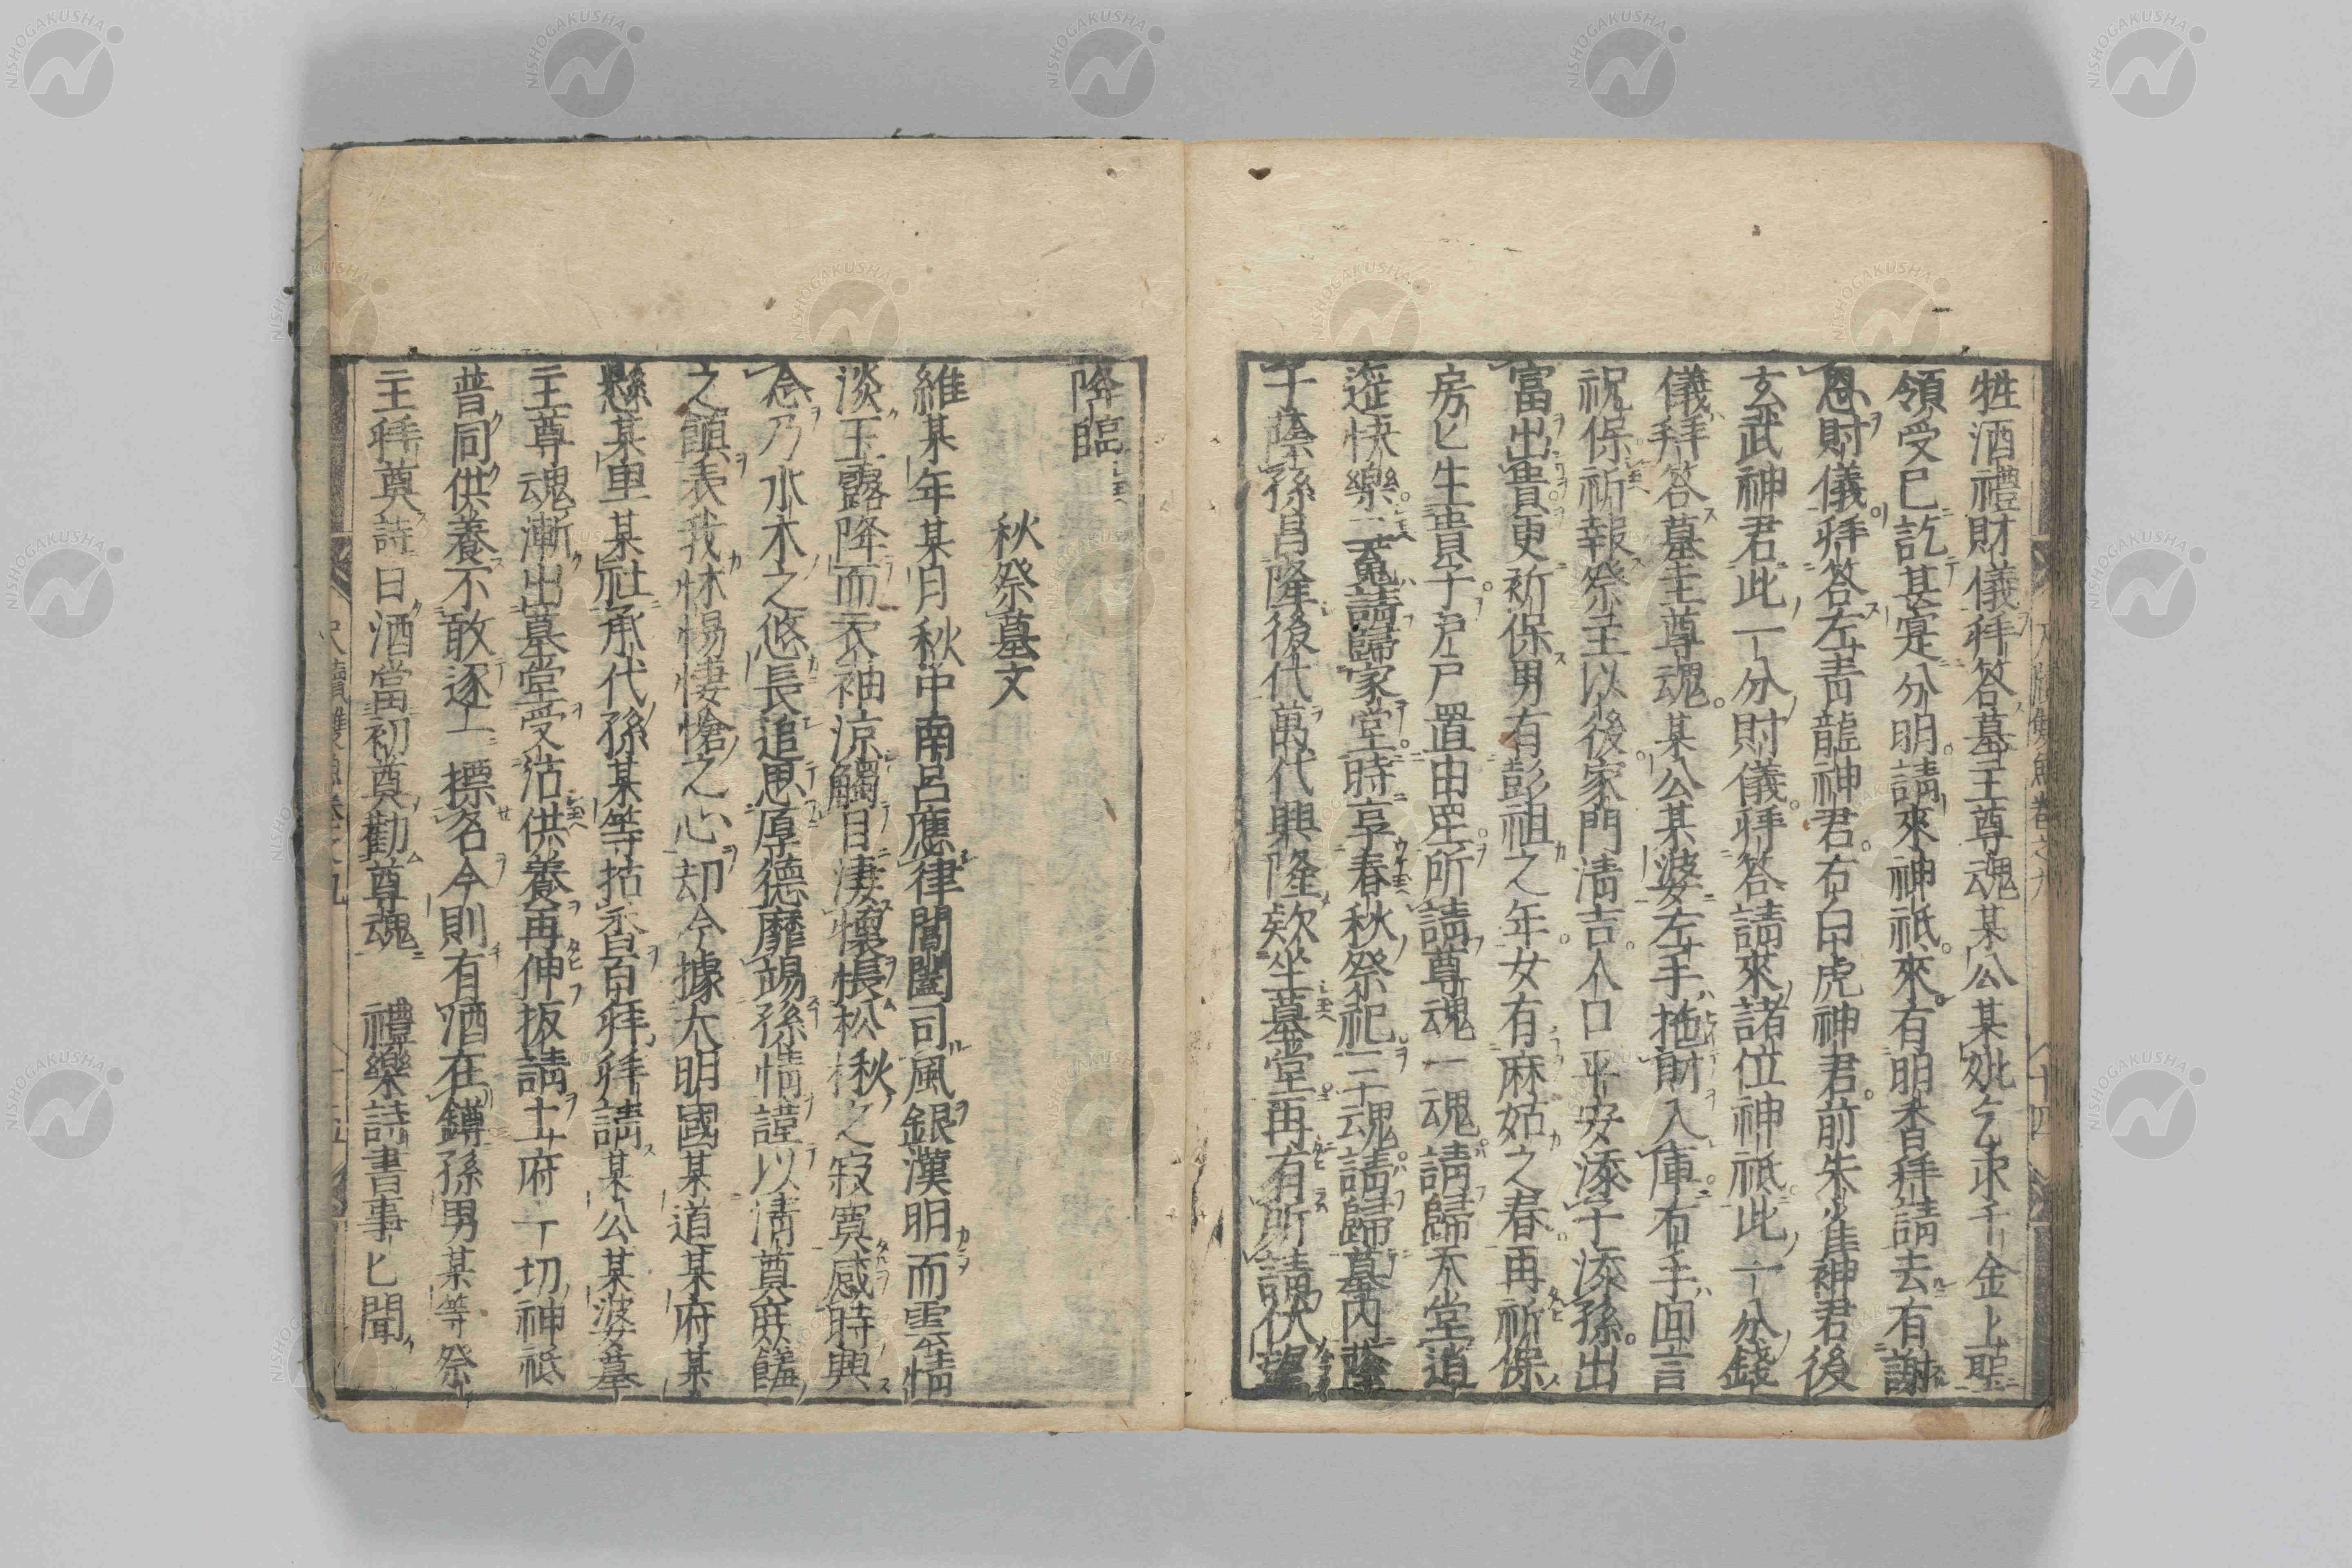 牲酒禮財儀拜答墓主尊魂某公某妣乞求千金上聖
領受已訖某寔分明請來神祇來有明香拜請去有謝
恩財儀拜答左青龍神君右白虎神君前朱雀神君後
玄武神君此一分財儀拜答請來諸位神祇此一分錢
儀拜答墓主尊魂某公某婆左手拖財入庫右手囬言
祝保祈報祭主以後家門清吉人口平安添子添孫出
富出貴更祈保男有彭祖之年女有麻姑之春再祈保
房匕生貴子戸戸置田庄所請尊魂一魂請歸天堂逍
遥快樂二䰟請歸家堂時享春秋祭祀三魂請歸墓内蔭
子蔭孫昌隆後代萬代興隆欵坐墓堂再有所請伏望
尺牘雙魚卷之九
十四
降臨
秋祭墓文
維某年某月秋中南呂應律閶闔司風銀漢明而雲情
淡玉露降而衣袖涼觸目淒懷悵松楸之寂寞感時興
念乃水木之悠長追思厚德靡竭孫情謹以清奠庶饈
之饋表我怵惕悽愴之心却今據大明國某道某府某
懸某里某社承代孫某等拈香百拜拜請某公某婆墓
主尊魂漸出墓堂受沾供養再伸扳請土府一切神祇
普同供養不敢逐一標名今則有酒在罇孫男某等祭
主拜奠詩曰酒當初奠勸尊魂　禮樂詩書事匕聞
尺牘雙魚卷之九
十五
NISHOGAKUSHA